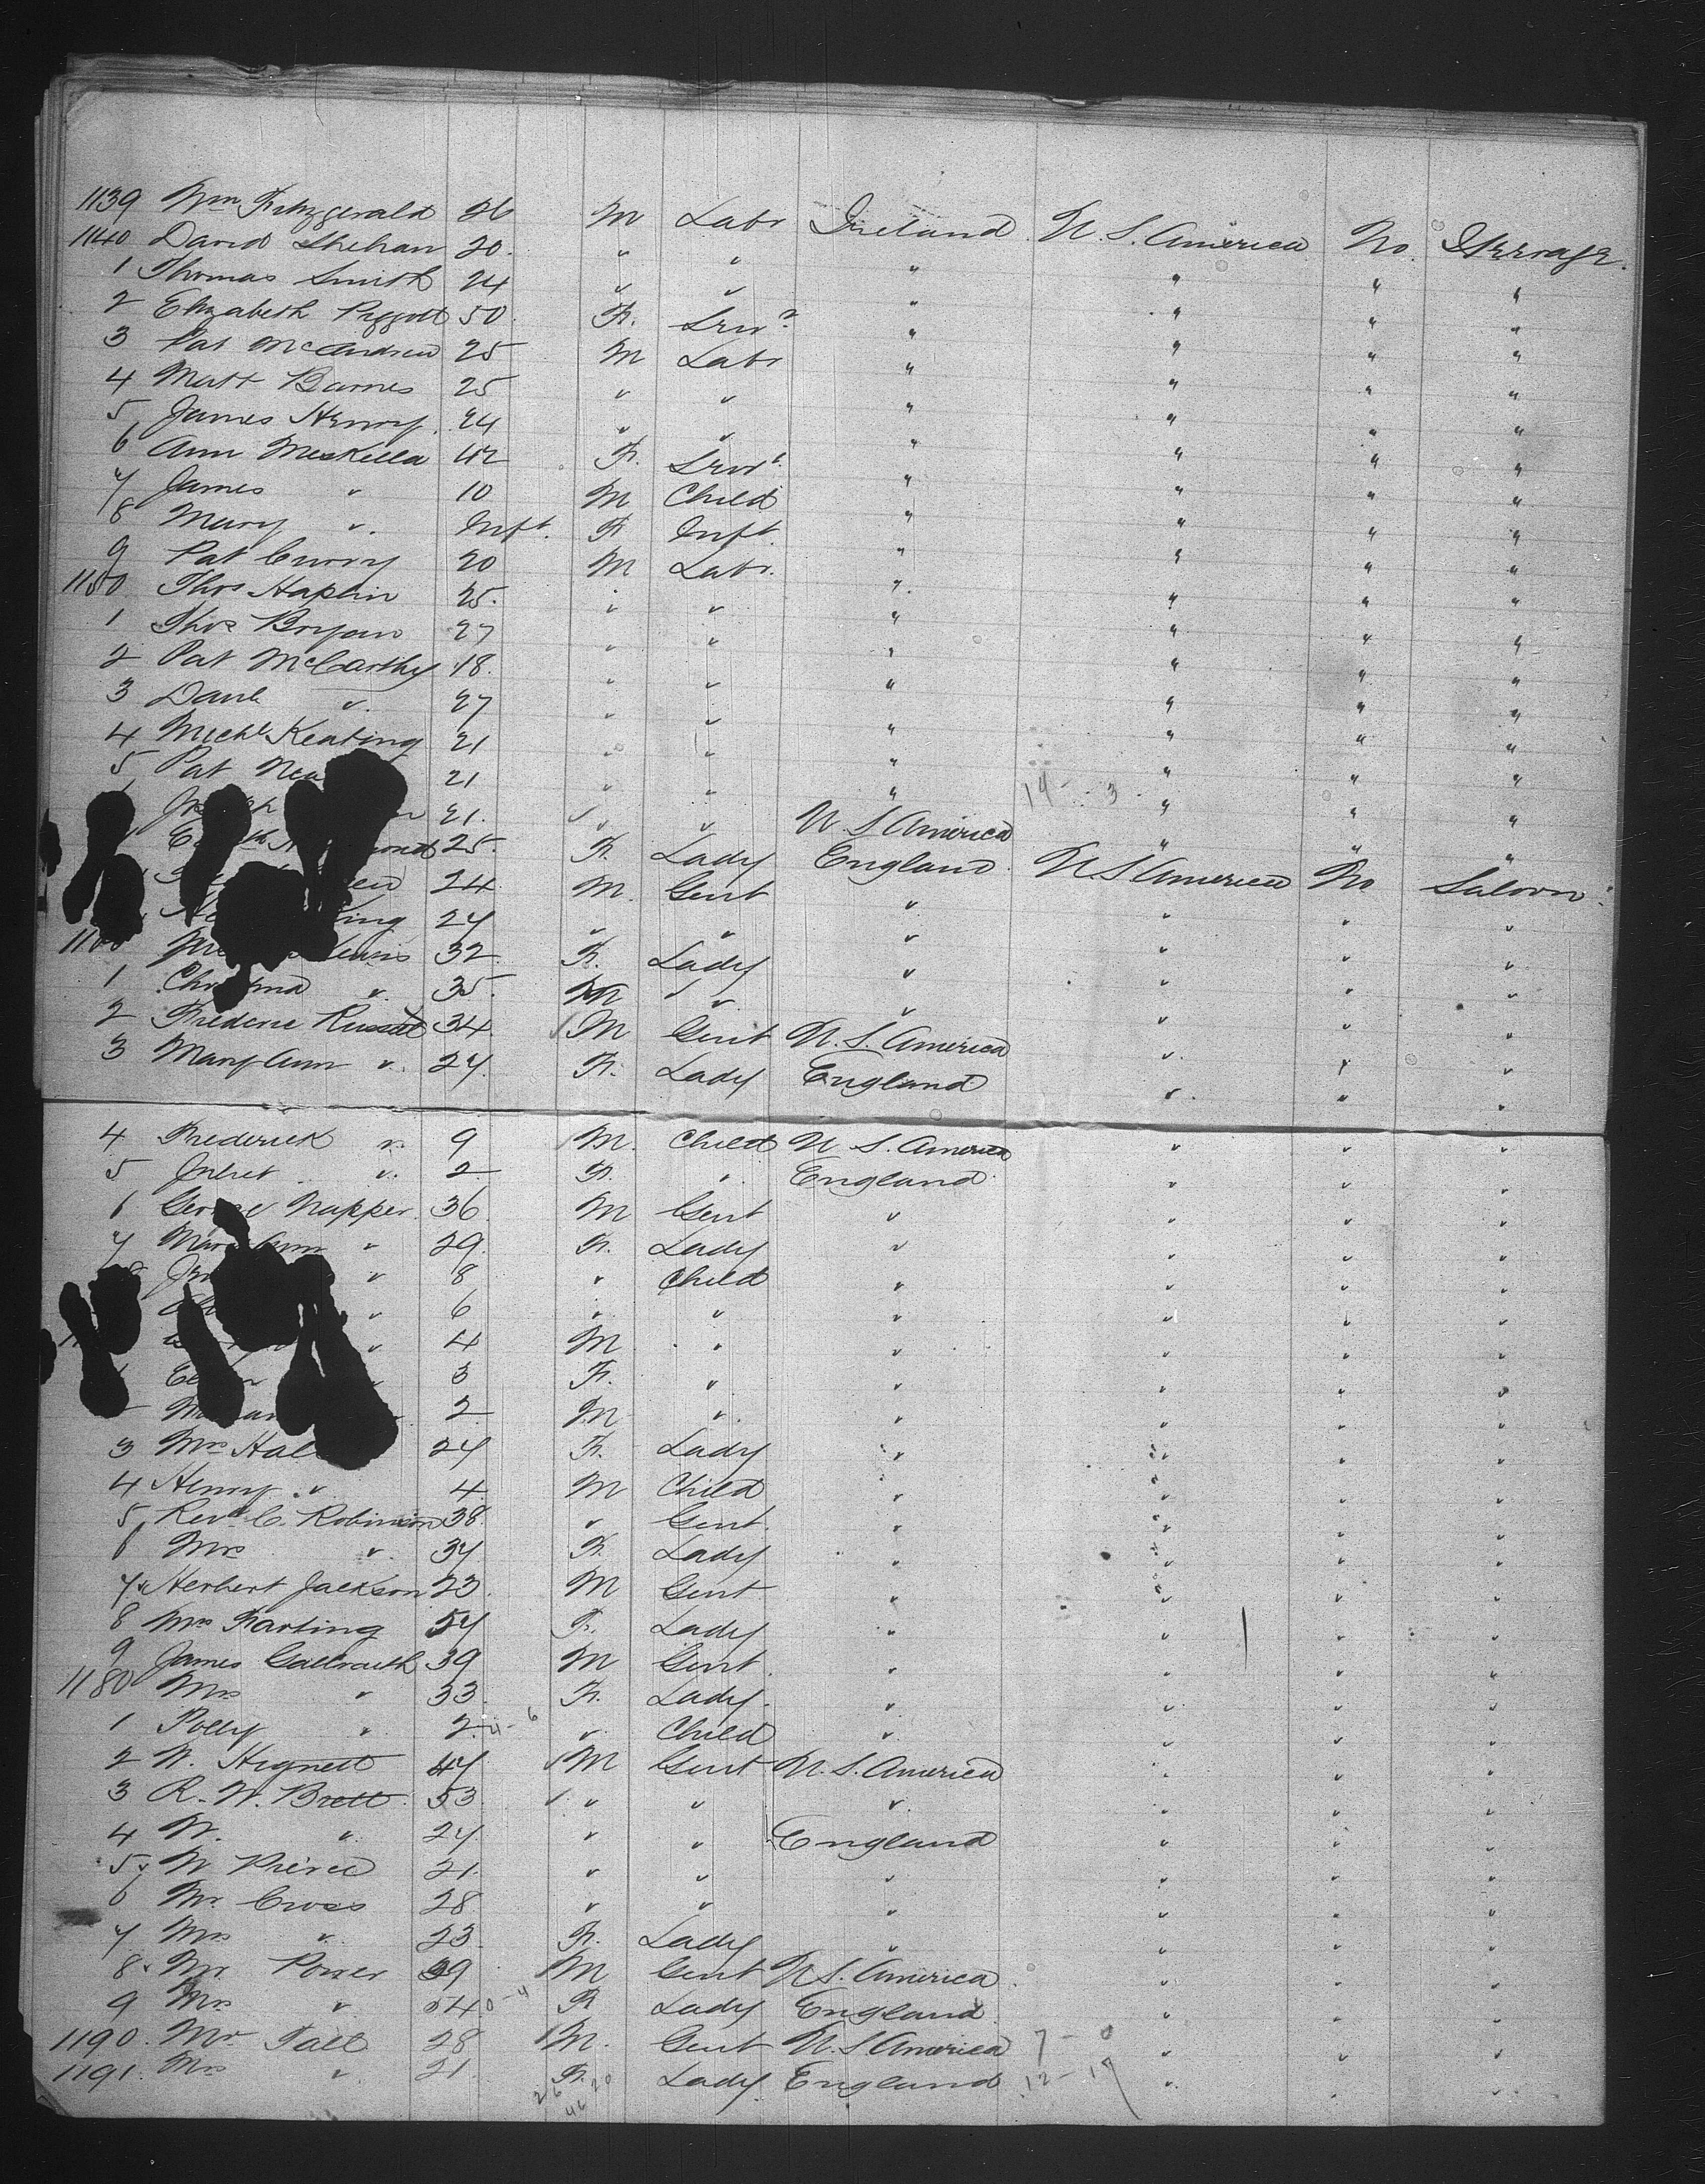 1139 Wm Fitzgerald 26 M Labr Ireland U. S. America No. Steerage.
1140 David Shehan 20. " " " " " "
1 Thomas Smith 24 " " " " " "
2 Elizabeth Piggott 50. F. Servt " " " "
3 Pat McAndrew 25 M Labr " " " "
4 Matt Barnes 25 " " " " " "
5 James Henry 24 " " " " " "
6 Ann Meskella 42 F. Servt " " " "
7 James " 10 M Child " " " "
8 Mary " Inft. F Inft. " " " "
9 Pat Curry 20 M Labr. " " " "
1150 Thos Haplin 25. " " " " " "
1 Thos Bryan 27 " " " " " "
2 Pat McCarthy 18. " " " " " "
3 Danl " 27 " " " " " "
4 Michl Keating 21 " " " " " "
5 Pat 21 " " " 14 - 3 " " "
21. " " U. S America " " "
25. F. Lady England U S America No Saloon
24. M. Gent " " " "
27 " " " " " "
32 F. Lady " " " "
1 " 35. " " " " "
2 Frederic Russell 34. M Gent U. S. America " " "
3 Mary Ann " 27. F. Lady England " " "
4 Frederick " 9 M. Child U. S. America " " "
5 " 2 F. " England " " "
6 George Napper 36 M Gent " " " "
7 Mary Ann " 29. F. Lady " " " "
8 " 8 " Child " " " "
" 6 " " " " " "
" 4 M " " " " "
" 3 F. " " " " "
2 M " " " " "
3 Mrs 27 F. Lady " " " "
4 Henry " 4. M Child " " " "
5 Revd C. Robinson 38. " Gent. " " " "
6 Mrs " 37 F. Lady " " " "
7 Herbert Jackson 23. M Gent " " " "
8 Mrs Farting 57 F. Lady " " " "
9 James Galbraith 39 M Gent. " " " "
1180 Mrs " 33. F. Lady. " " " "
1 Polly " 2. " Child " " " "
2 W. Hignett 47 M Gent U. S. America " " "
3 R. W. Brett 53. " " " " " "
4 W. " 27. " " England " " "
5 W Pierce 21. " " " " " "
6 Mr. Cross 28. " " " " " "
7 Mrs " 23. F. Lady " " " "
8 Mr Power 39 M Gent U S. America " " "
9 Mrs " 40 F Lady England " " "
1190. Mr Tall 28 M. Gent U. S America 7 - 0 " " "
1191. Mrs " 21. F. Lady England 12 - 17 " " "
26 20
46